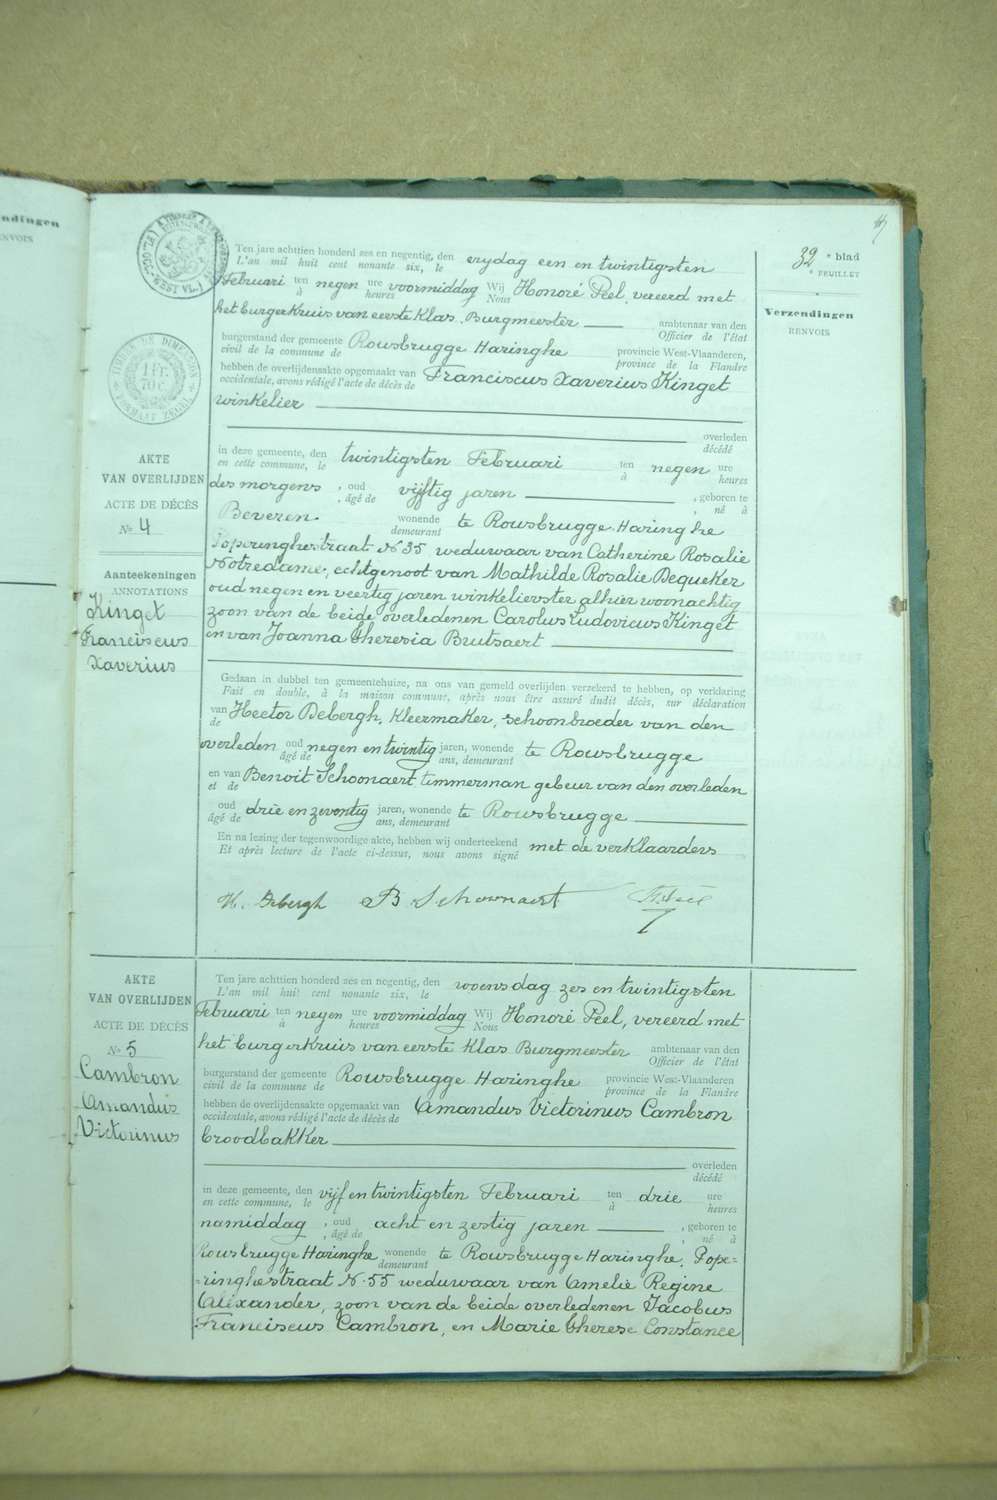 ndingen
ENVOIS
32 e blad
e FEUILLET
Verzendingen
RENVOIS
TIMBRE DE DIMENSION
1 Fr.
70 c.
FORMAAT ZEGEL
Ten jare achttien honderd zes en negentig, den vrydag een en twintigsten
L'an mil huit cent nonante six, le
Februari ten negen ure voormiddag Wij Honoré Peel, vereerd met
à heures Nous
het burgerkruis van eerste Klas. Burgmeester ambtenaar van den
Officier de l'état
burgerstand der gemeente Rousbrugge Haringhe provincie West-Vlaanderen,
civil de la commune de province de la Flandre
hebben de overlijdensakte opgemaakt van Franciscus Xaverius Kinget
occidentale, avons rédigé l'acte de décès de
winkelier
overleden
décédé
AKTE
VAN OVERLIJDEN
ACTE DE DÉCÈS
No 4
in deze gemeente, den twintigsten Februari ten negen ure
en cette commune, le à heures
des morgens, oud vyftig jaren, geboren te
, âgé de , né à
Beveren wonende te Rousbrugge Haringhe
demeurant
Poperinghestraat No 35 weduwaar van Catherine Rosalie
Notredame, echtgenoot van Mathilde Rosalie Dequeker
oud negen en veertig jaren winkelierster alhier woonachtig
zoon van de beide overledenen Carolus Ludovicus Kinget
en van Joanna Theresia Brutsaert
Aanteekeningen
ANNOTATIONS
Kinget
Franciscus
Xaverius
Gedaan in dubbel ten gemeentehuize, na ons van gemeld overlijden verzekerd te hebben, op verklaring
Fait en double, à la maison commune, après nous être assuré dudit décès, sur déclaration
van Hector Debergh, Kleermaker, schoonbroeder van den
de
overleden oud negen en twintig jaren, wonende te Rousbrugge
âgé de ans, demeurant
en van Benoit Schoonaert timmerman gebeur van den overleden
et de
oud drie en zeventig jaren, wonende te Rousbrugge
âgé de ans, demeurant
En na lezing der tegenwoordige akte, hebben wij onderteekend met de verklaarders
Et après lecture de l'acte ci-dessus, nous avons signé
H. Debergh B Schoonaert
AKTE
VAN OVERLIJDEN
ACTE DE DÉCÈS
No 5
Cambron
Amandus
Victorinus
Ten jare achttien honderd zes en negentig, den woensdag zes en twintigsten
L'an mil huit cent nonante six, le
Februari ten negen ure voormiddag Wij Honoré Peel, vereerd met
à heures Nous
het burgerkruis van eerste Klas Burgmeester ambtenaar van den
Officier de l'état
burgerstand der gemeente Rousbrugge Haringhe provincie West-Vlaanderen
civil de la commune de province de la Flandre
hebben de overlijdensakte opgemaakt van Amandus Victorinus Cambron
occidentale, avons rédigé l'acte de décès de
broodbakker
overleden
décédé
in deze gemeente, den vijf en twintigsten Februari ten drie ure
en cette commune, le à heures
namiddag, oud acht en zestig jaren, geboren te
, âgé de , né à
Rousbrugge Haringhe wonende te Rousbrugge Haringhe, Pope-
demeurant
-ringhestraat No 55 weduwaar van Amelie Regine
Alexander, zoon van de beide overledenen Jacobus
Franciscus Cambron, en Marie Therese Constance